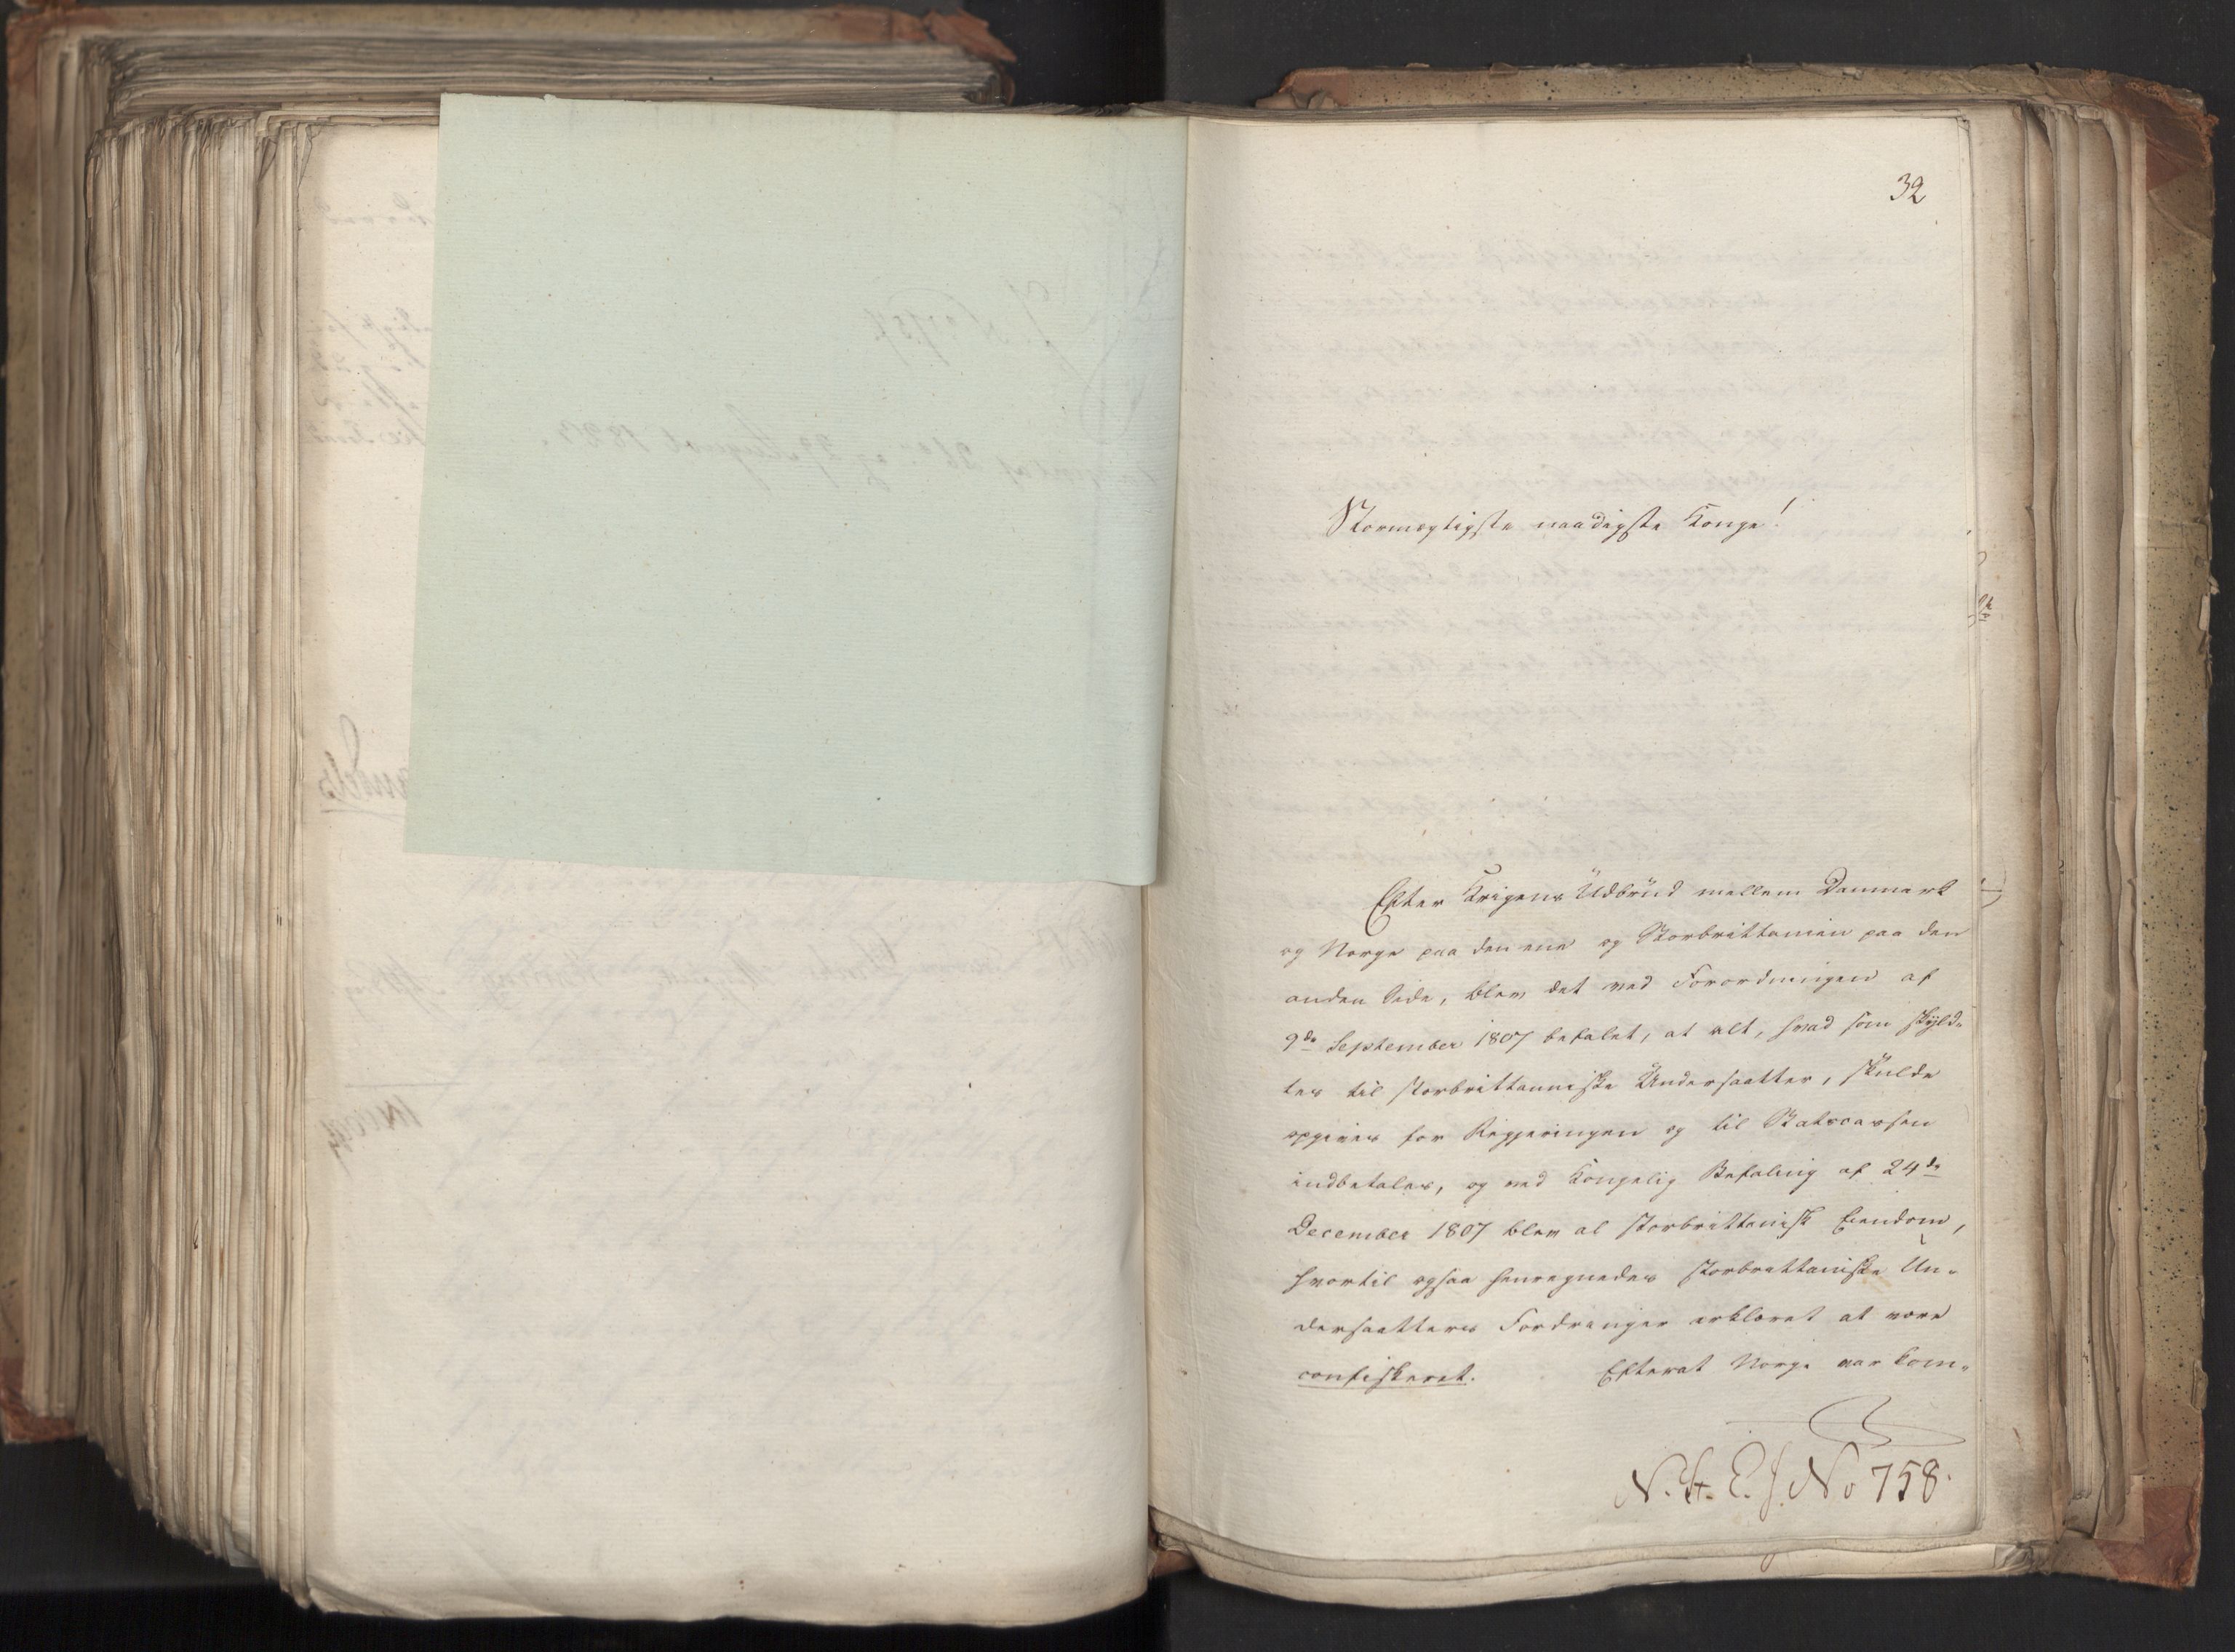 32
Stormegtigste naadigste Konge!
Efter Krigens Udbrud mellem Danmark
og Norge paa den ene og Storbrittanien paa den
anden Side, blev det ved Forordningen af
9de September 1807 befalet, at alt, hvad som skyld-
tes til storbrittanniske Undersaatter, skulde
opgives for Regjeringen og til Statscassen
indbetales, og ved Kongelig Befaling af 24de
December 1807 blev al storbrittanisk Eiendom,
hvortil ogsaa henregnedes storbrittaniske Un-
dersaatters Fordringer erklæret at være
confiskeret. Efterat Norge var kom-
N. H. E. J. No 758.